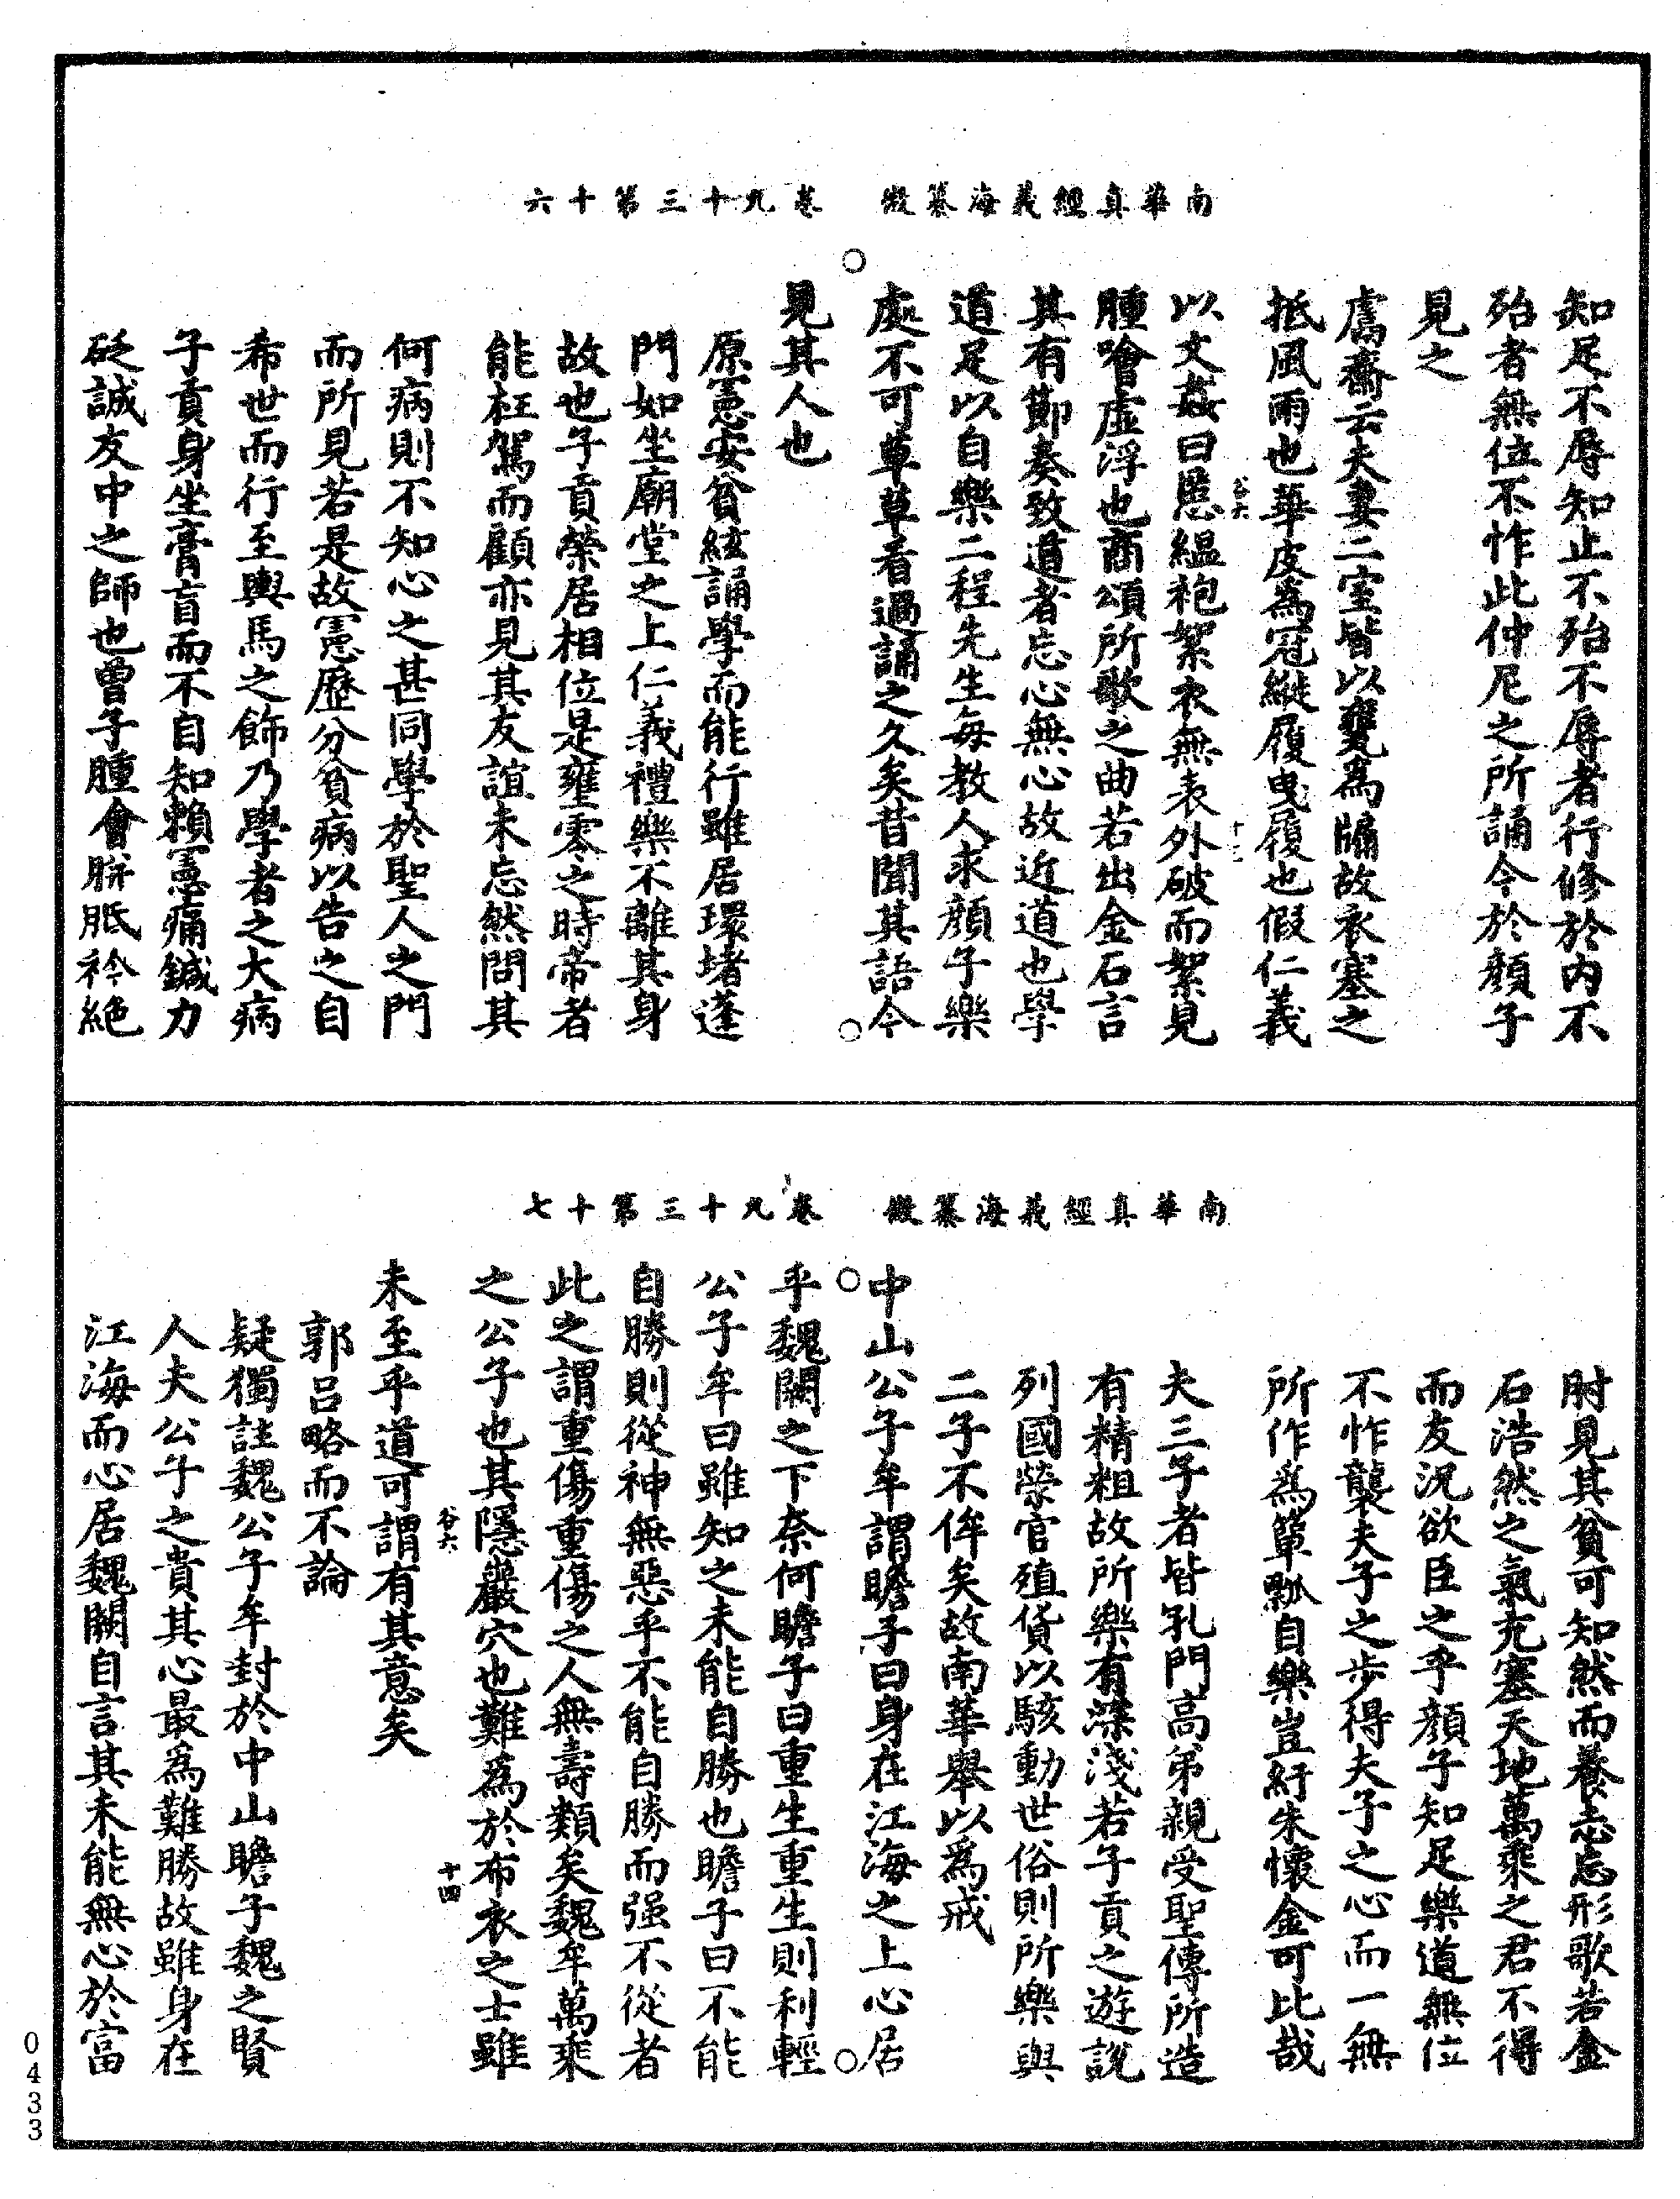 南華真經義海纂微　卷九十三第十六
知足不辱知止不殆不辱者行修於內不
殆者無位不怍此仲尼之所誦今於顏子
見之
鬳齋云夫妻二室皆以甕為牖故衣塞之
抵風雨也華皮為冠縰履曳履也假仁義
谷六　十三
以文姦曰慝縕袍絮衣無表外破而絮見
腫噲虛浮也商頌所歌之曲若出金石言
其有節奏致道者忘心無心故近道也學
道足以自樂二程先生每教人求顏子樂
處不可草草看過誦之久矣昔聞其語今
見其人也
原憲安貧絃誦學而能行雖居環堵蓬
門如坐廟堂之上仁義禮樂不離其身
故也子貢榮居相位是壅霿之時帝者
能枉駕而顧亦見其友誼未忘然問其
何病則不知心之甚同學於聖人之門
而所見若是故憲歷分貧病以告之自
希世而行至輿馬之飾乃學者之大病
子貢身坐膏盲而不自知賴憲痛鍼力
砭誠友中之師也曾子腫會胼胝衿絕
南華真經義海纂微　卷九十三第十七
肘見其貧可知然而養志忘形歌若金
石浩然之氣充塞天地萬乘之君不得
而友況欲臣之乎顏子知足樂道無位
不怍襲夫子之步得夫子之心而一無
所作為簞瓢自樂豈紆朱懷金可比哉
夫三子者皆孔門高弟親受聖傳所造
有精粗故所樂有深淺若子貢之遊說
列國榮官殖貨以駭動世俗則所樂與
二子不侔矣故南華舉以為戒
中山公子牟謂瞻子曰身在江海之上心居
乎魏闕之下奈何瞻子曰重生重生則利輕
公子牟曰雖知之未能自勝也瞻子曰不能
自勝則從神無惡乎不能自勝而强不從者
此之謂重傷重傷之人無壽類矣魏牟萬乘
之公子也其隱巖穴也難為於布衣之士雖
谷六　十四
未至乎道可謂有其意矣
郭呂略而不論
疑獨註魏公子牟封於中山瞻子魏之賢
人夫公子之貴其心最為難勝故雖身在
江海而心居魏闕自言其未能無心於富
0433